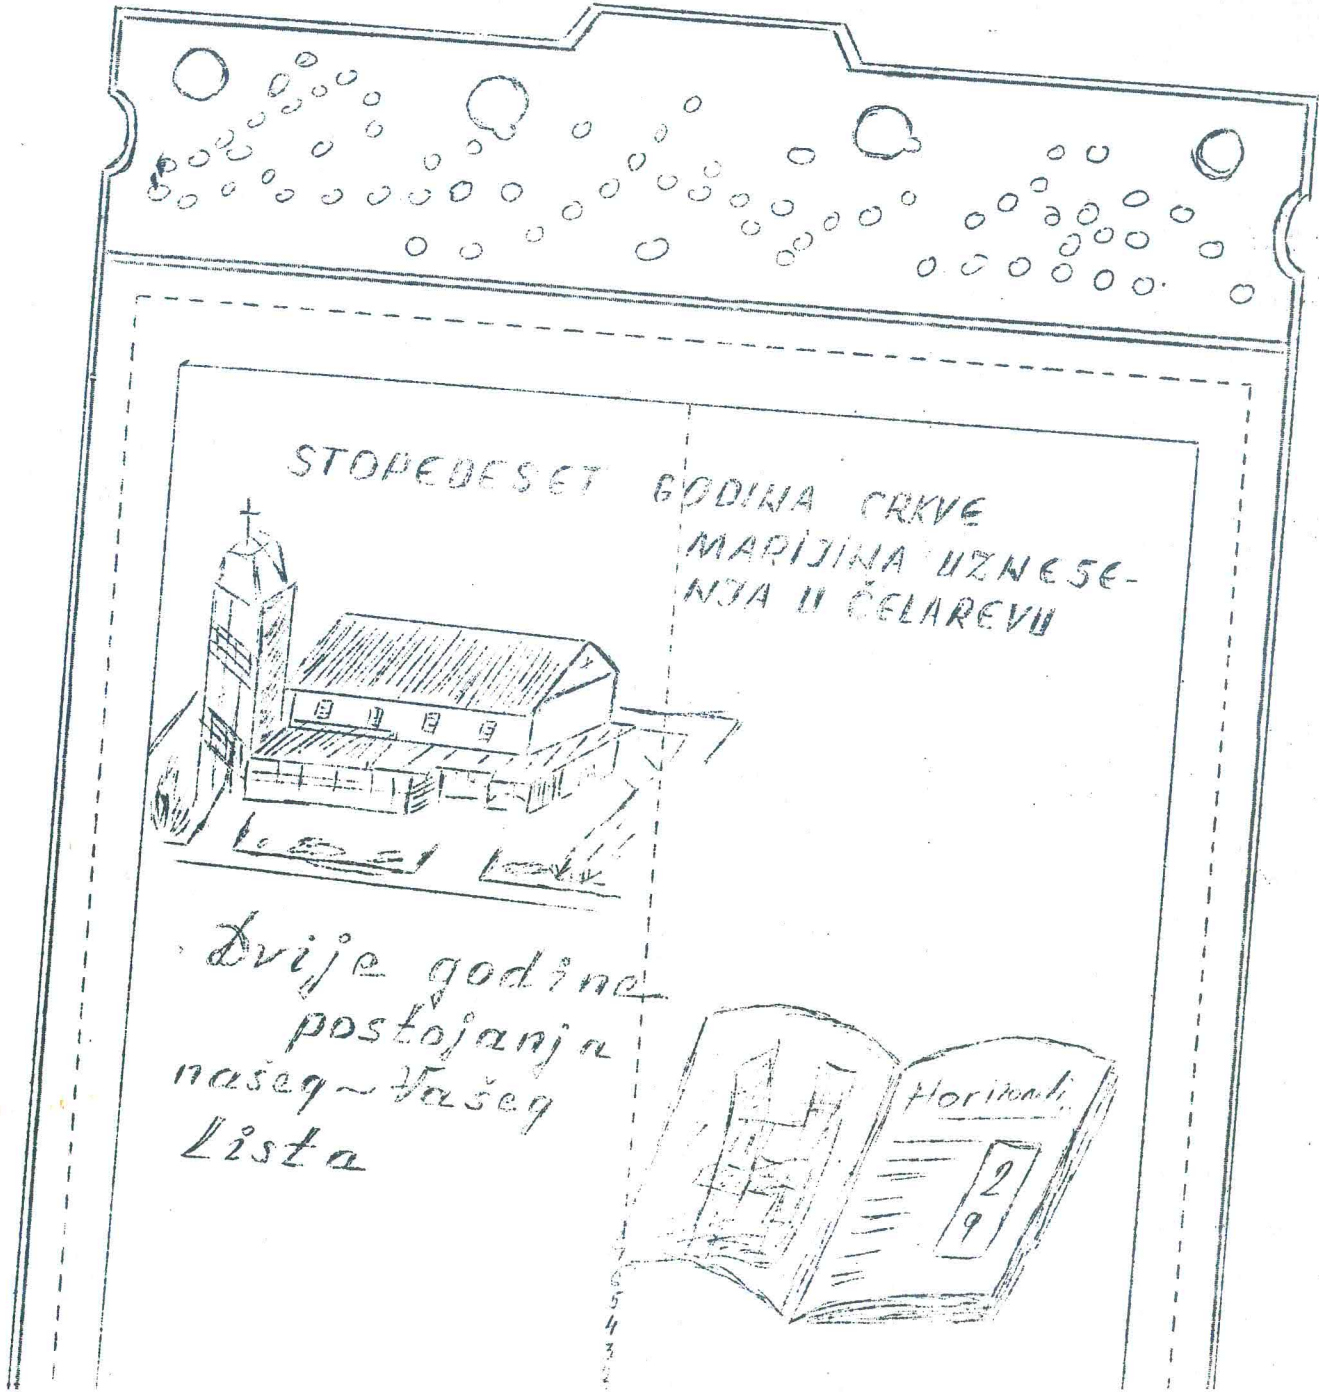 STOPEDESET GODINA CRKVE
MARIJINA UZNESE-
NJA U ČELAREVU
Dvije godine
postojanja
našeg~Vašeg
Lista
Horizonti
2
9
7
6
5
4
3